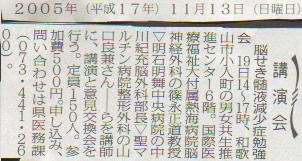 2005年（平成17年）　11月13日（日曜日）
講演会
脳せき髄液減少症勉強
会　19日14〜17時、和歌
山市小人町の男女共生推
進センター6階。国際医
療福祉大付属熱海病院脳
神経外科の篠永正道教授
▽明石明舞中央病院の中
川紀充脳外科部長▽聖マ
ルチン病院整形外科の山
口良兼さん――らを講師
に、講演と意見交換会を
行う。定員150人。参
加費500円。申し込み、
問い合わせは県医務課
（073・441・26
00）。